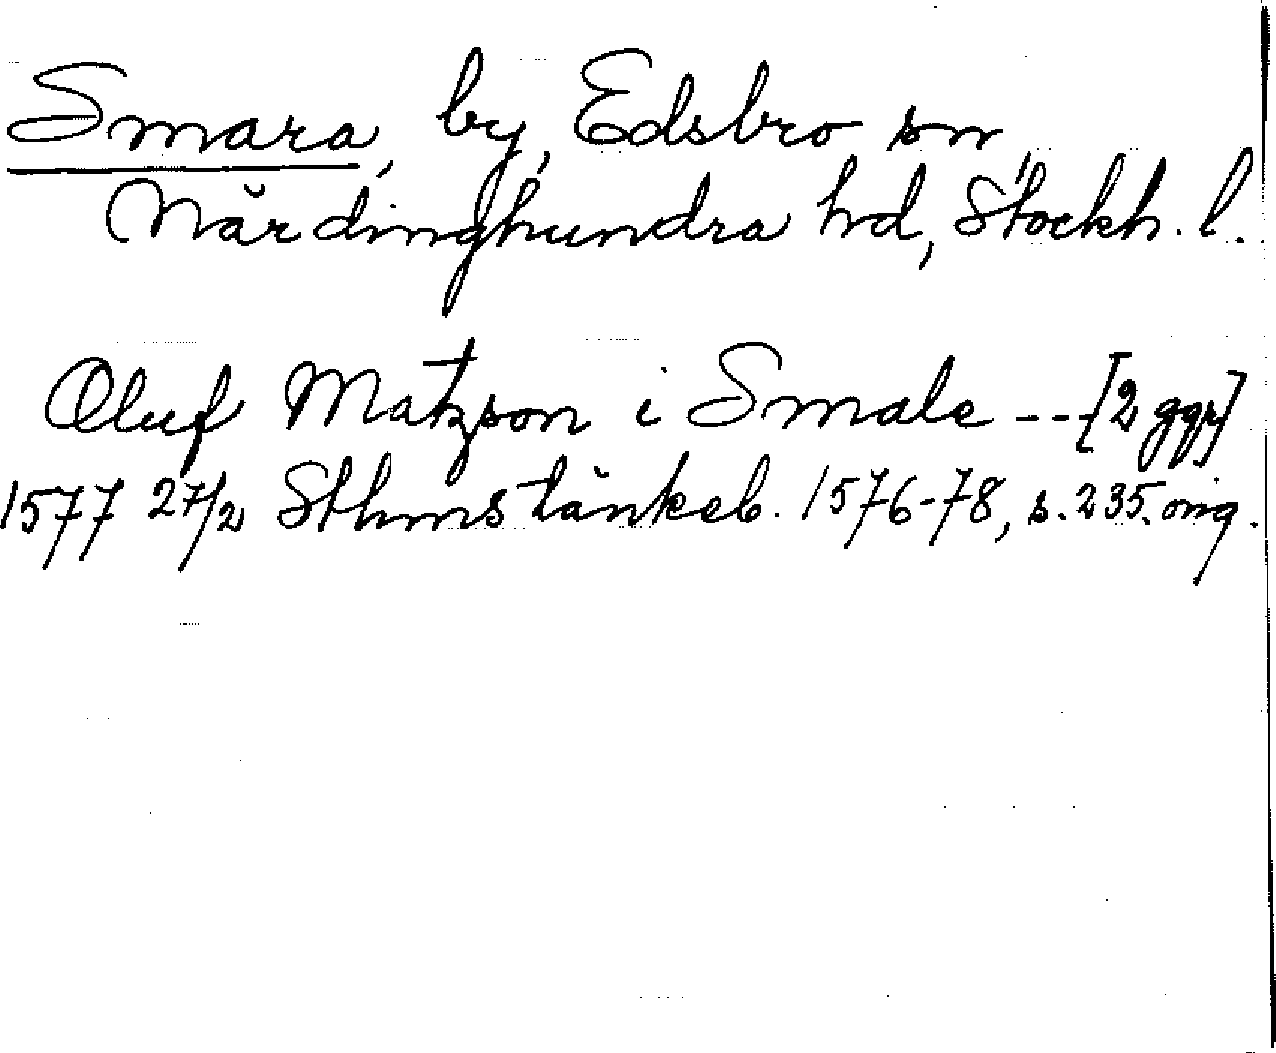 Smara, by, Edsbro sn,
Närdinghundra hd, Stockh. l.
Oluf Matzson i Smale --- [2 ggr]
1577 27/2 Sthms tänkeb. 1576-78, s. 235. orig.